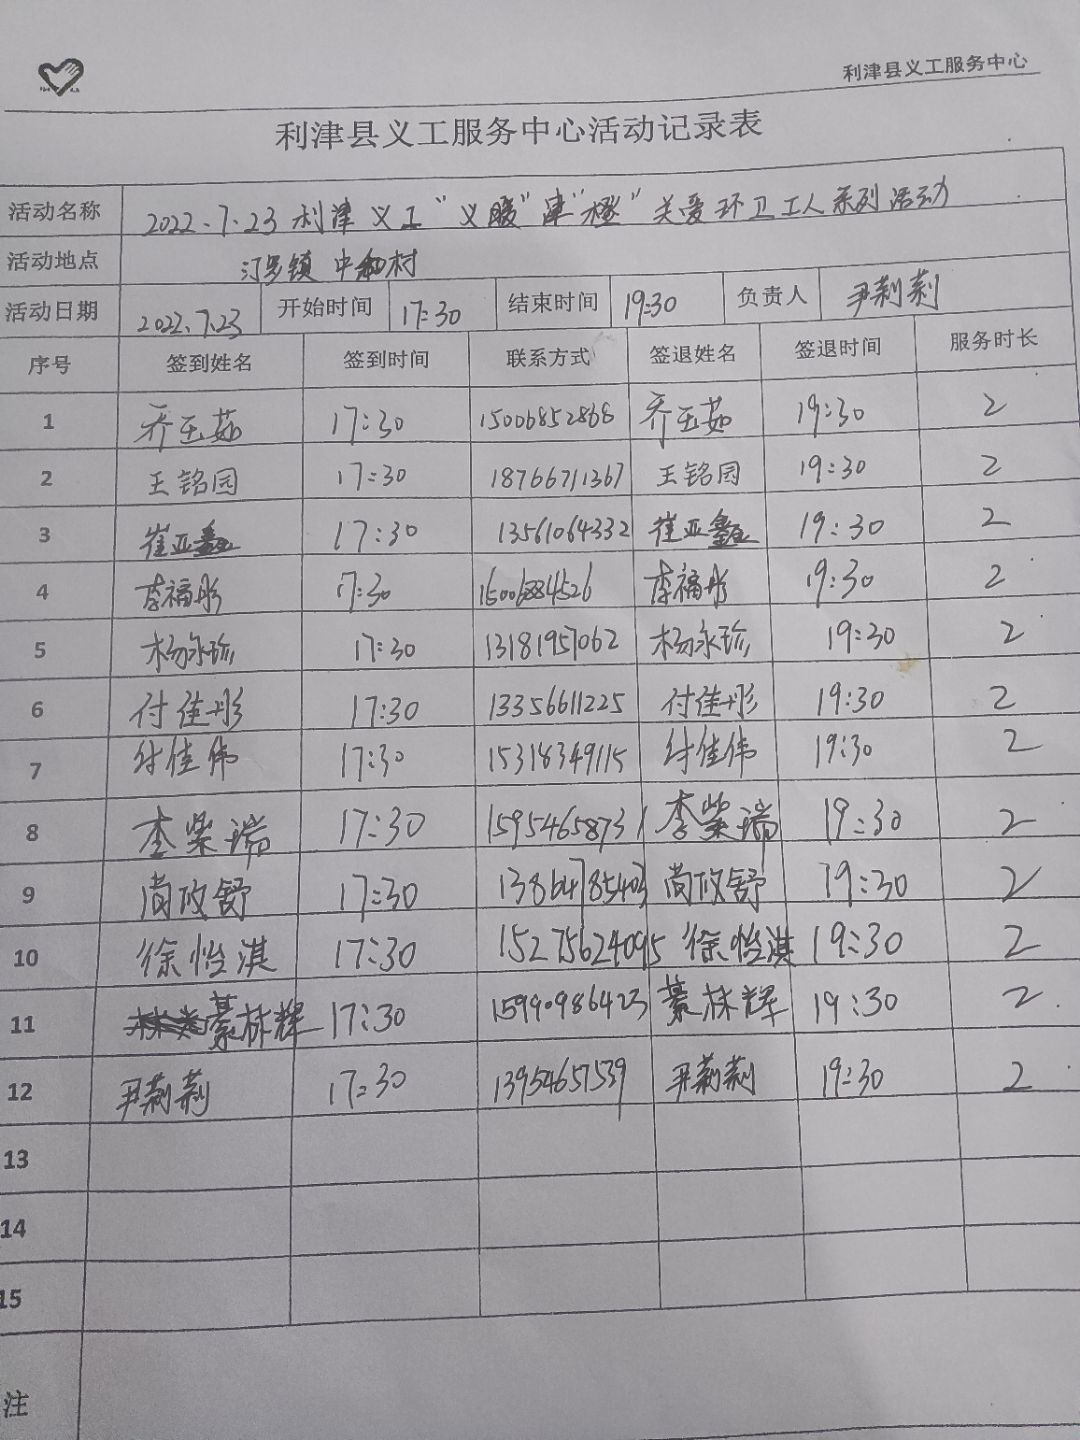 利津县义工服务中心
利津县义工服务中心活动记录表
活动名称 2022.7.23利津义工“义暖”津“橙”关爱环卫工人系列活动
活动地点 汀罗镇 中和村
活动日期 2022.7.23 开始时间 17:30 结束时间 19:30 负责人 尹莉莉
序号 签到姓名 签到时间 联系方式 签退姓名 签退时间 服务时长
1 乔玉茹 17:30 15006852868 乔玉茹 19:30 2
2 王铭园 17:30 18766711367 王铭园 19:30 2
3 崔亚鑫 17:30 13561064332 崔亚鑫 19:30 2
4 李福彤 17:30 15006884526 李福彤 19:30 2
5 杨永珍 17:30 13181957062 杨永珍 19:30 2
6 付佳彤 17:30 13356611225 付佳彤 19:30 2
7 付佳伟 17:30 15318349115 付佳伟 19:30 2
8 李紫瑞 17:30 15954658731 李紫瑞 19:30 2
9 尚政舒 17:30 13864785403 尚政舒 19:30 2
10 徐怡淇 17:30 15275624095 徐怡淇 19:30 2
11 綦林辉 17:30 15990986423 綦林辉 19:30 2
12 尹莉莉 17:30 13954657539 尹莉莉 19:30 2
13
14
15
注